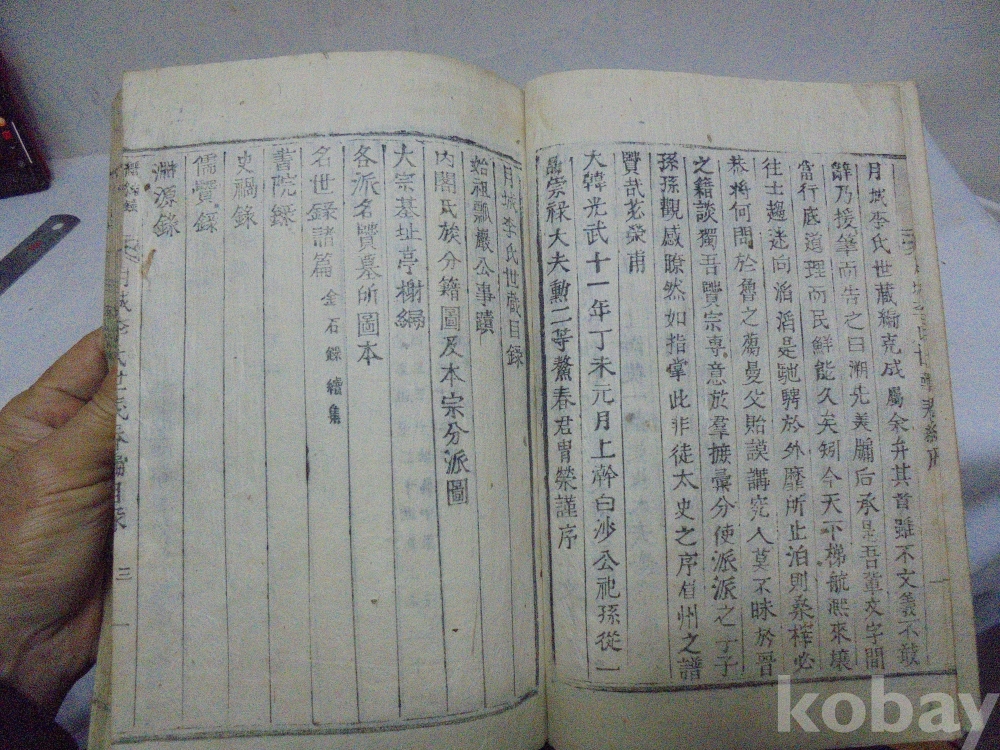 月城李氏世藏編克成屬余弁其首雖不文義不敢
辭乃援筆而告之曰溯先美牖后承是吾輩文字間
當行底道理而民鮮能久矣矧今天下梯航熙來壤
往士趨迷向滔滔是馳騁於外靡所止泊則桑梓必
恭將何問於魯之蔿曼父貽謨講究人莫不昧於晉
之籍談獨吾賢宗專意於羣摭彙分使派派之子子
孫孫觀感瞭然如指掌此非徒太史之序眉州之譜
賢哉
大韓光武十一年丁未元月上澣白沙公祀孫從一
品崇祿大夫勳二等鰲春君胄榮謹序
月城李氏世藏目錄
始祖瓢巖公事蹟
內閣氏族分籍圖及本宗分派圖
大宗基址亭榭編
各派名賢墓所圖本
名世錄諸篇 金石錄 續集
書院錄
史禍錄
儒賢錄
淵源錄
三
一
kobay